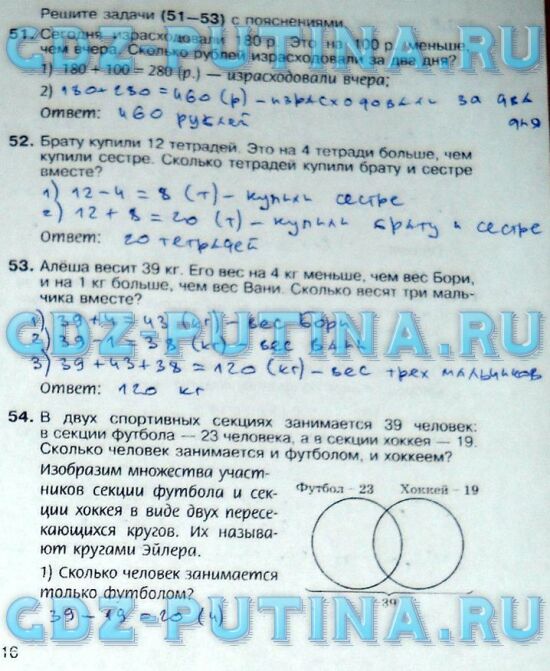 Решите задачи (51—53) с пояснениями.
51. Сегодня израсходовали 180 р. Это на 100 р. меньше,
чем вчера. Сколько рублей израсходовали за два дня?
1) 180 + 100 = 280 (р.) — израсходовали вчера;
2) 180 + 280 = 460 (р) - израсходовали за два
дня
Ответ: 460 рублей
52. Брату купили 12 тетрадей. Это на 4 тетради больше, чем
купили сестре. Сколько тетрадей купили брату и сестре
вместе?
1) 12 - 4 = 8 (т) - купили сестре
2) 12 + 8 = 20 (т) - купили брату и сестре
Ответ: 20 тетрадей
53. Алёша весит 39 кг. Его вес на 4 кг меньше, чем вес Бори,
и на 1 кг больше, чем вес Вани. Сколько весят три маль-
чика вместе?
1) 39 + 4 = 43 (кг) - вес Бори
2) 39 - 1 = 38 (кг) - вес Вани
3) 39 + 43 + 38 = 120 (кг) - вес трех мальчиков
Ответ: 120 кг
54. В двух спортивных секциях занимается 39 человек:
в секции футбола — 23 человека, а в секции хоккея — 19.
Сколько человек занимается и футболом, и хоккеем?
Изобразим множества участ-
ников секции футбола и сек-
ции хоккея в виде двух пересе-
кающихся кругов. Их называ-
ют кругами Эйлера.
Футбол - 23 Хоккей - 19
39
1) Сколько человек занимается
только футболом?
39 - 19 = 20 (ч)
16
GDZ-PUTINA.RU
GDZ-PUTINA.RU
GDZ-PUTINA.RU
GDZ-PUTINA.RU